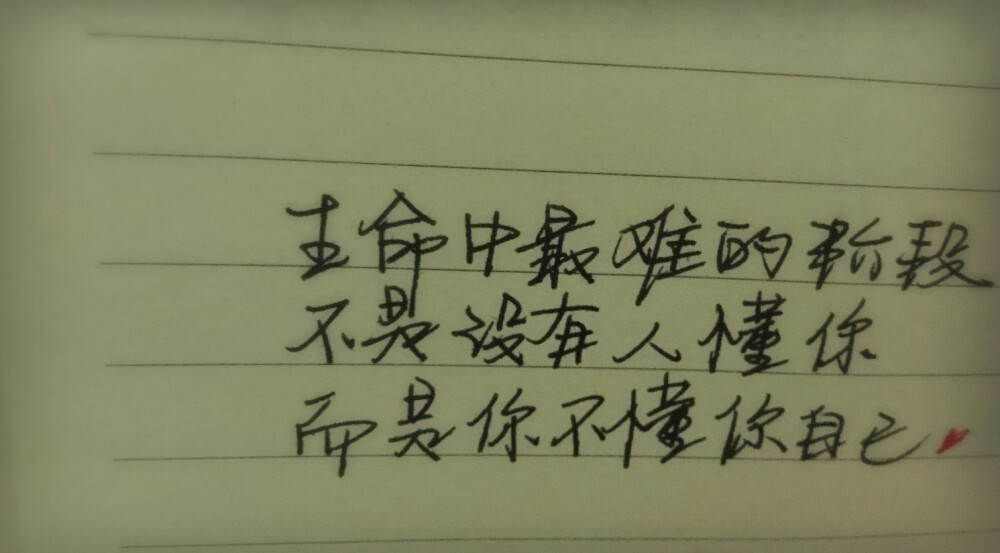 生命中最难的阶段
不是没有人懂你
而是你不懂你自己